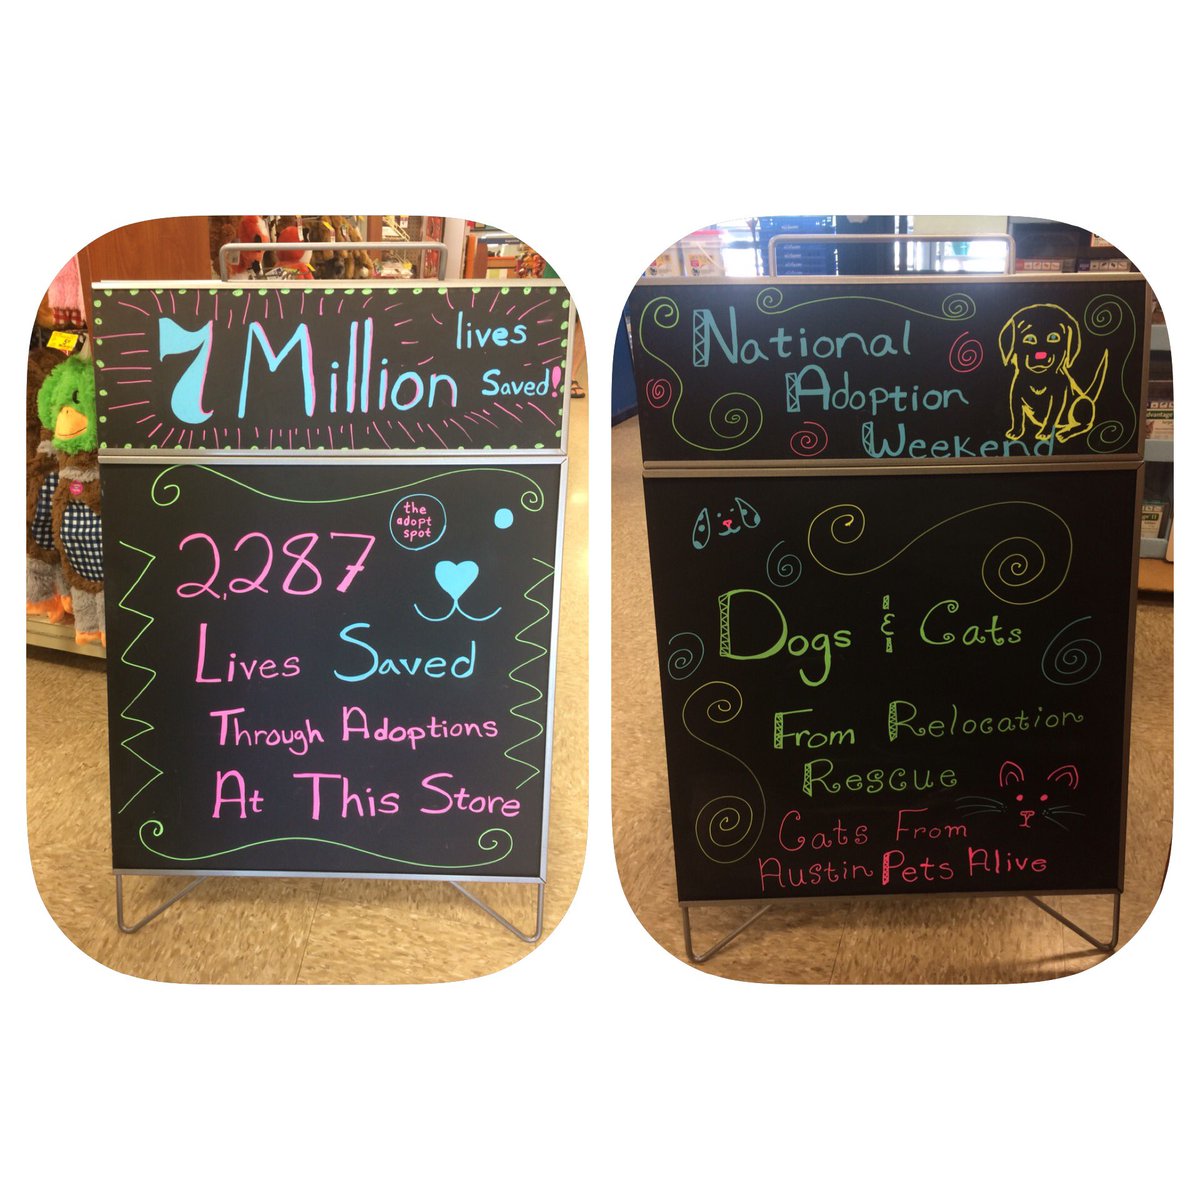 7 Million lives
Saved!
the
adopt
spot
2,287
Lives Saved
Through Adoptions
At This Store
National
Adoption
Weekend
Dogs & Cats
From Relocation
Rescue
Cats From
Austin Pets Alive